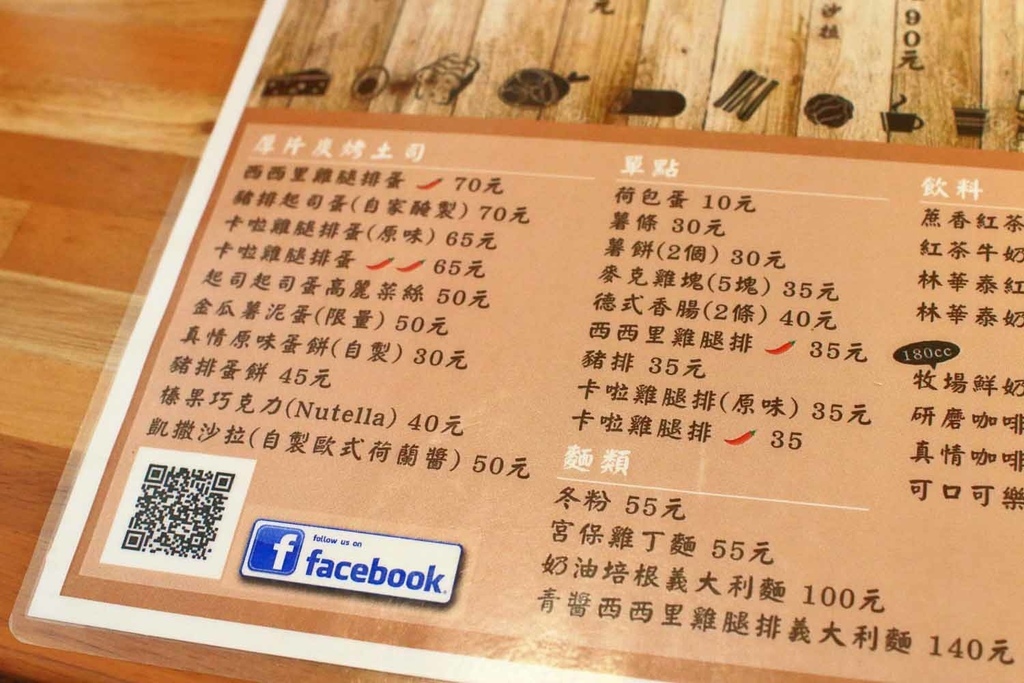 元
沙拉
90元
厚片炭烤土司
西西里雞腿排蛋 70元
豬排起司蛋(自家醃製) 70元
卡啦雞腿排蛋(原味) 65元
卡啦雞腿排蛋 65元
起司起司蛋高麗菜絲 50元
金瓜薯泥蛋(限量) 50元
真情原味蛋餅(自製) 30元
豬排蛋餅 45元
榛果巧克力(Nutella) 40元
凱撒沙拉(自製歐式荷蘭醬) 50元
follow us on
facebook
單點
荷包蛋 10元
薯條 30元
薯餅(2個) 30元
麥克雞塊(5塊) 35元
德式香腸(2條) 40元
西西里雞腿排 35元
豬排 35元
卡啦雞腿排(原味) 35元
卡啦雞腿排 35
麵類
冬粉 55元
宮保雞丁麵 55元
奶油培根義大利麵 100元
青醬西西里雞腿排義大利麵 140元
飲料
蔗香紅茶
紅茶牛奶
林華泰紅
林華泰奶
180cc
牧場鮮奶
研磨咖啡
真情咖啡
可口可樂